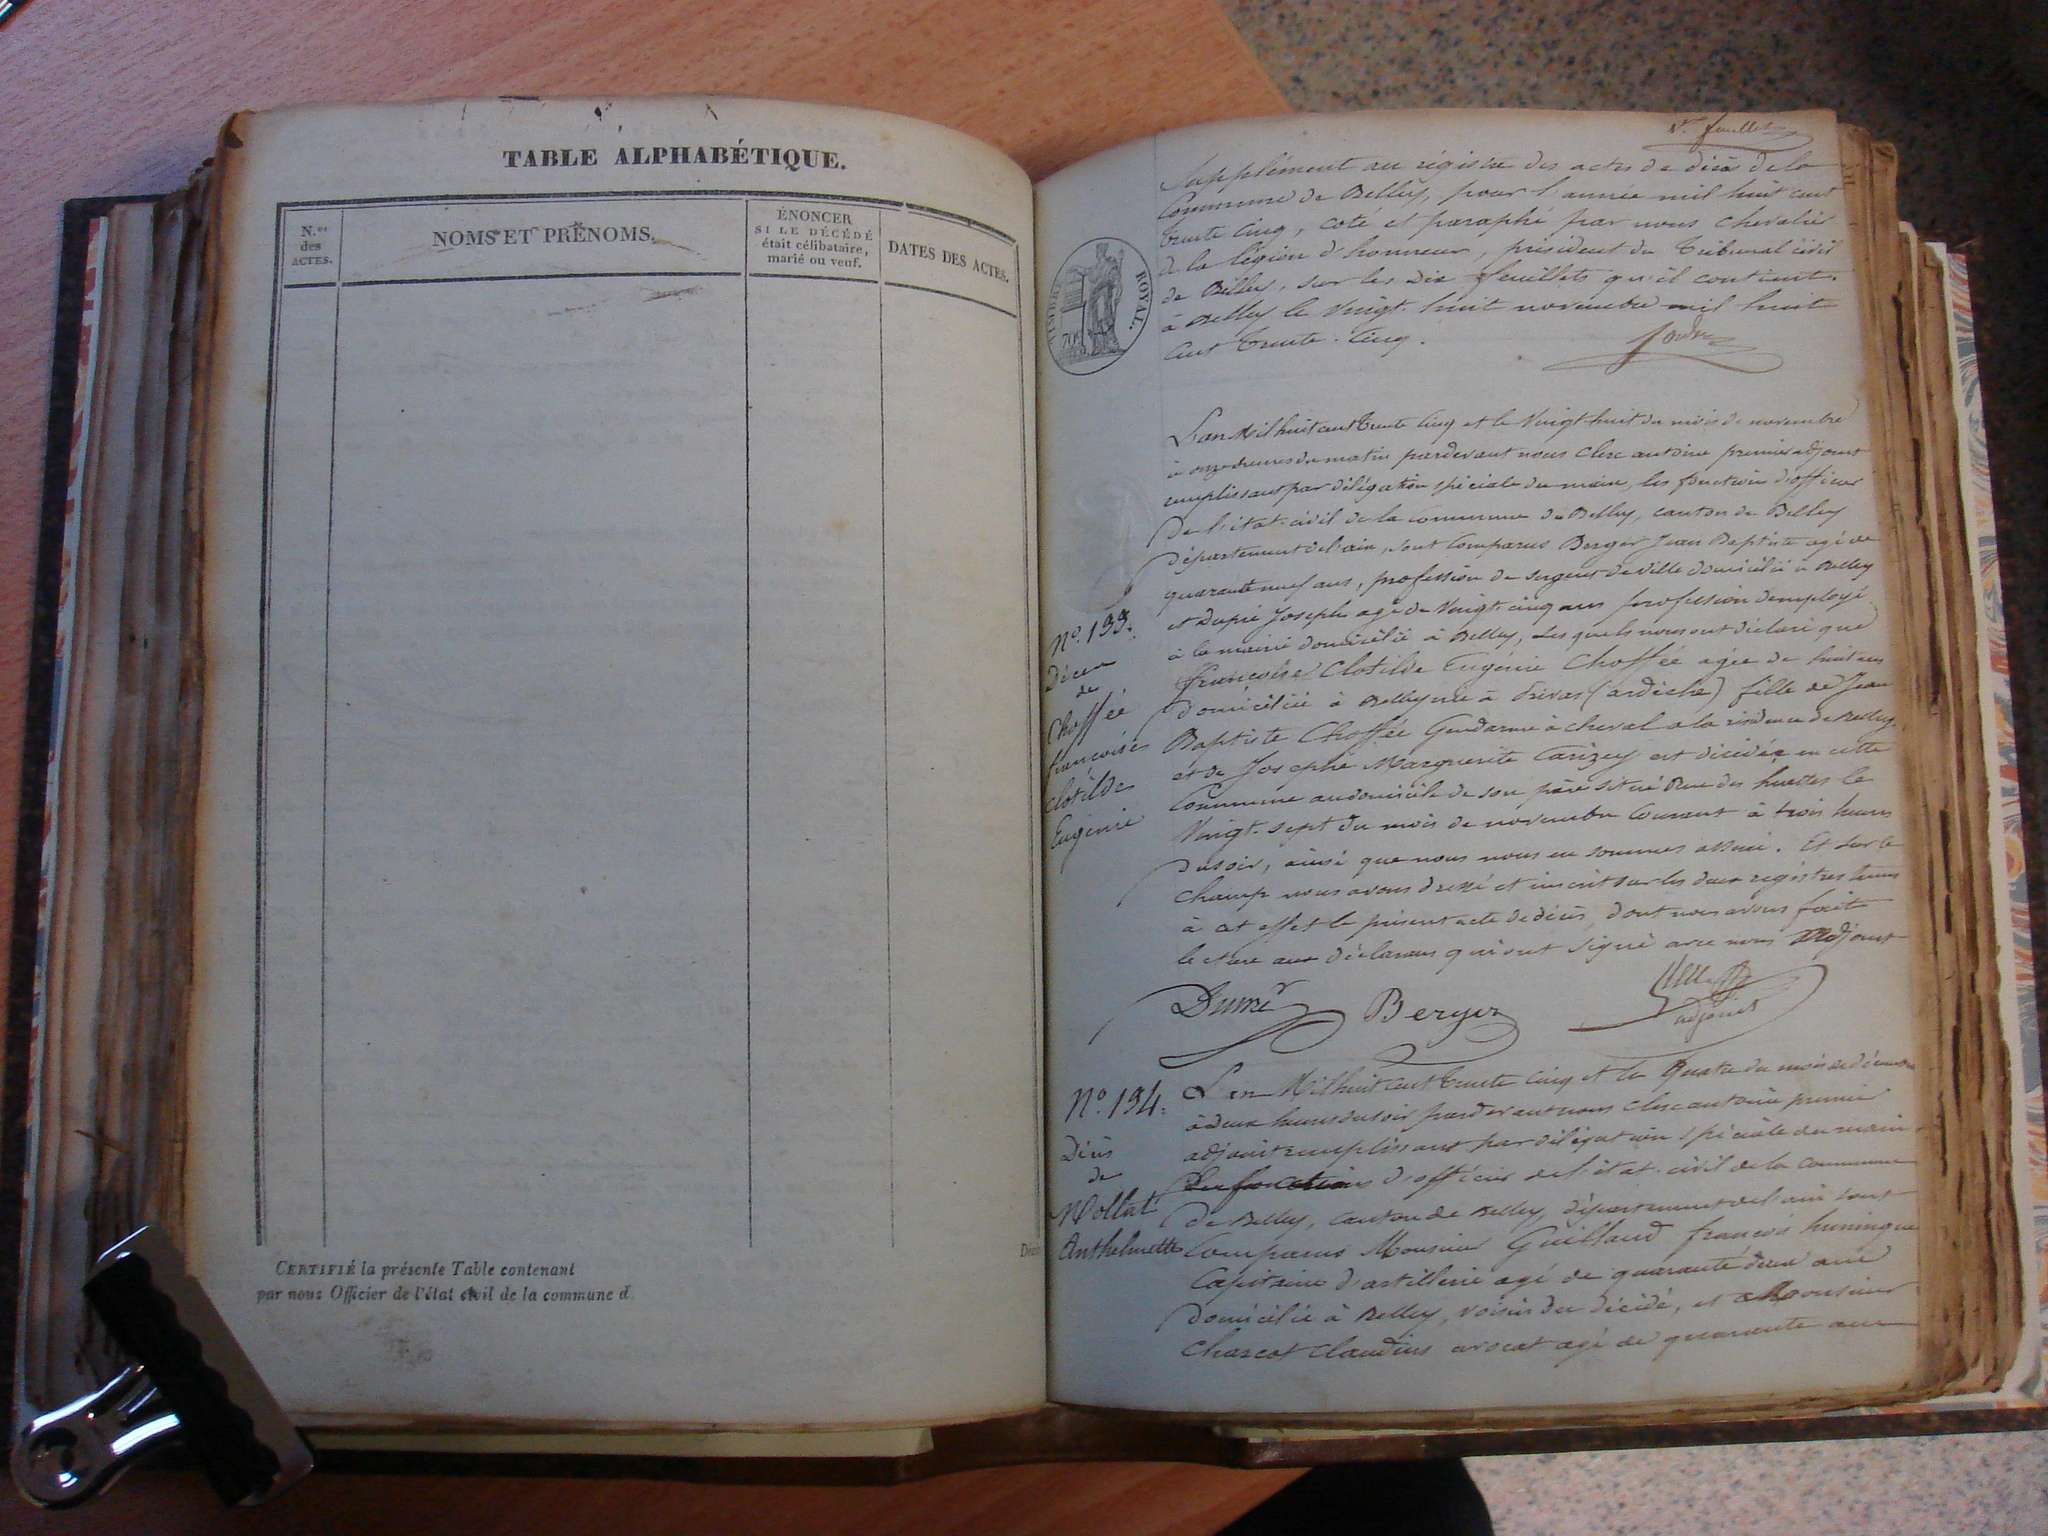 TABLE ALPHABÉTIQUE.
N.os
des
ACTES.
NOMS ET PRÉNOMS.
ÉNONCER
SI LE DÉCÉDÉ
était célibataire,
marié ou veuf.
DATES DES ACTES.
CERTIFIÉ la présente Table contenant
par nous Officier de l'état civil de la commune d
1er feuillet
Supplément au régistre des actes de décès de la
Commune de Belley, pour l'année mil huit cent
trente cinq, coté et paraphé par nous chevalier
de la légion d'honneur, président du Tribunal civil
de Belley, sur les dix feuillets qu'il contient.
à Belley le Vingt huit novembre mil huit
cent trente-cinq.
TIMBRE ROYAL.
70c
L'an Mil huit cent trente cinq et le Vingt huit du mois de novembre
à onze heures du matin pardevant nous Clerc antoine premier adjoint
remplissant par délégation spéciale du maire, les fonctions d'officier
De l'état-civil de la commune de Belley, canton de Belley
Département de l'ain, sont Comparus Berger Jean Baptiste agé de
quarante neuf ans, profession de sergent de ville domicilié à Belley
et Joseph agé de Vingt-cinq ans profession d'employé
à la mairie domicilié à Belley, Les quels nous ont déclaré que
françoise Clotilde Eugénie Choffée agée de huit ans
domiciliée à Belley née à Privas (ardèche) fille de Jean
Baptiste Choffée Gendarme à cheval a la résidence de Belley,
et de Josephe Marguerite Carizey est décédée en cette
Commune au domicile de son père situé Rue des le
Vingt-sept du mois de novembre courant à trois heures
du soir, ainsi que nous nous en sommes assuré. Et sur le
champ nous avons dressé et inscrit sur les deux régistres tenus
à cet effet le présent acte de décès, dont nous avons fait
lecture aux déclarans qui ont signé avec nous adjoint
N.o 133.
Décès
de
Choffée
françoise
clotilde
Eugénie
Berger
adjoint
N.o 134.
Décès
de
Mollat
Anthelmette
L'an Mil huit cent trente cinq et le Quatre du mois de décembre
à deux heures du soir pardevant nous Clerc antoine premier
adjoint remplissant par délégation spéciale du maire
les fonctions d'officier de l'état-civil de la commune
de Belley, canton de Belley, département de l'ain sont
Comparus Monsieur Guilland françois huningue
Capitaine d'artillerie agé de quarante deux ans
domicilié à Belley, voisin du décédé, et Monsieur
Charcot Claudius avocat agé de quarante ans